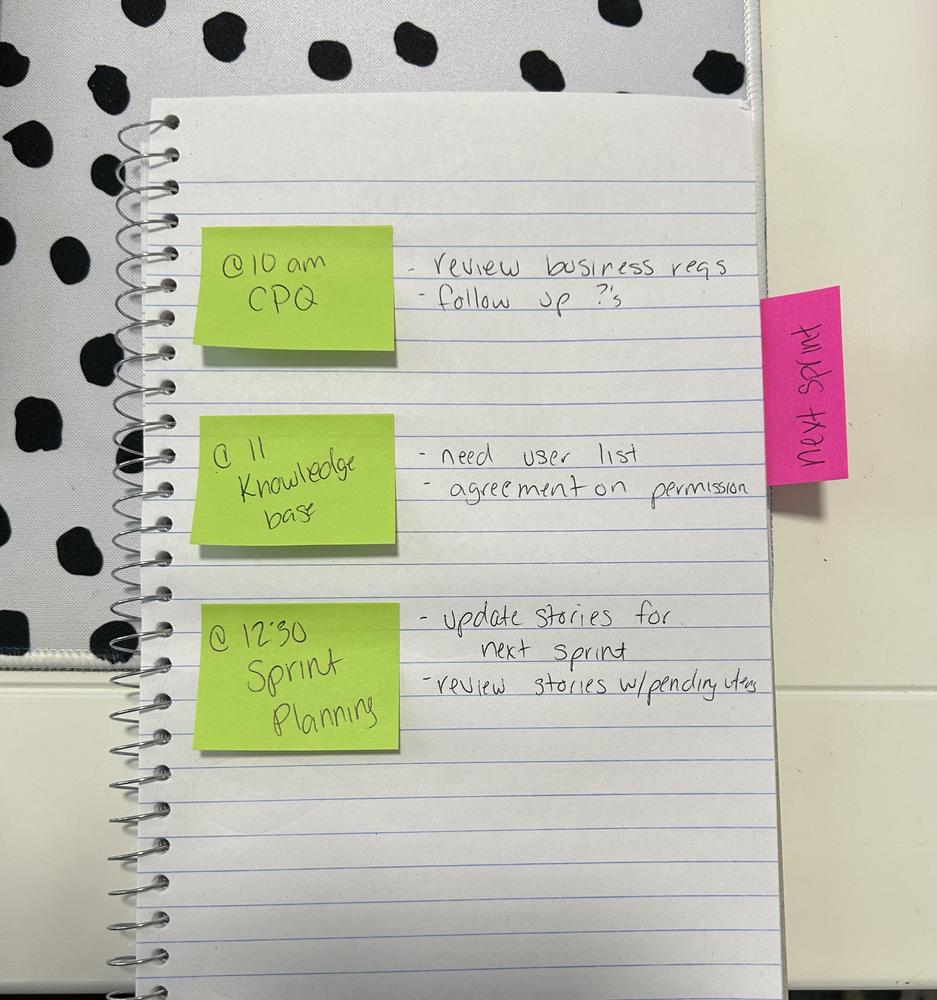 @ 10 am
CPQ
- review business reqs
- follow up ?'s
next sprint
@ 11
Knowledge
base
- need user list
- agreement on permission
@ 12:30
Sprint
Planning
- update stories for
next sprint
- review stories w/pending items